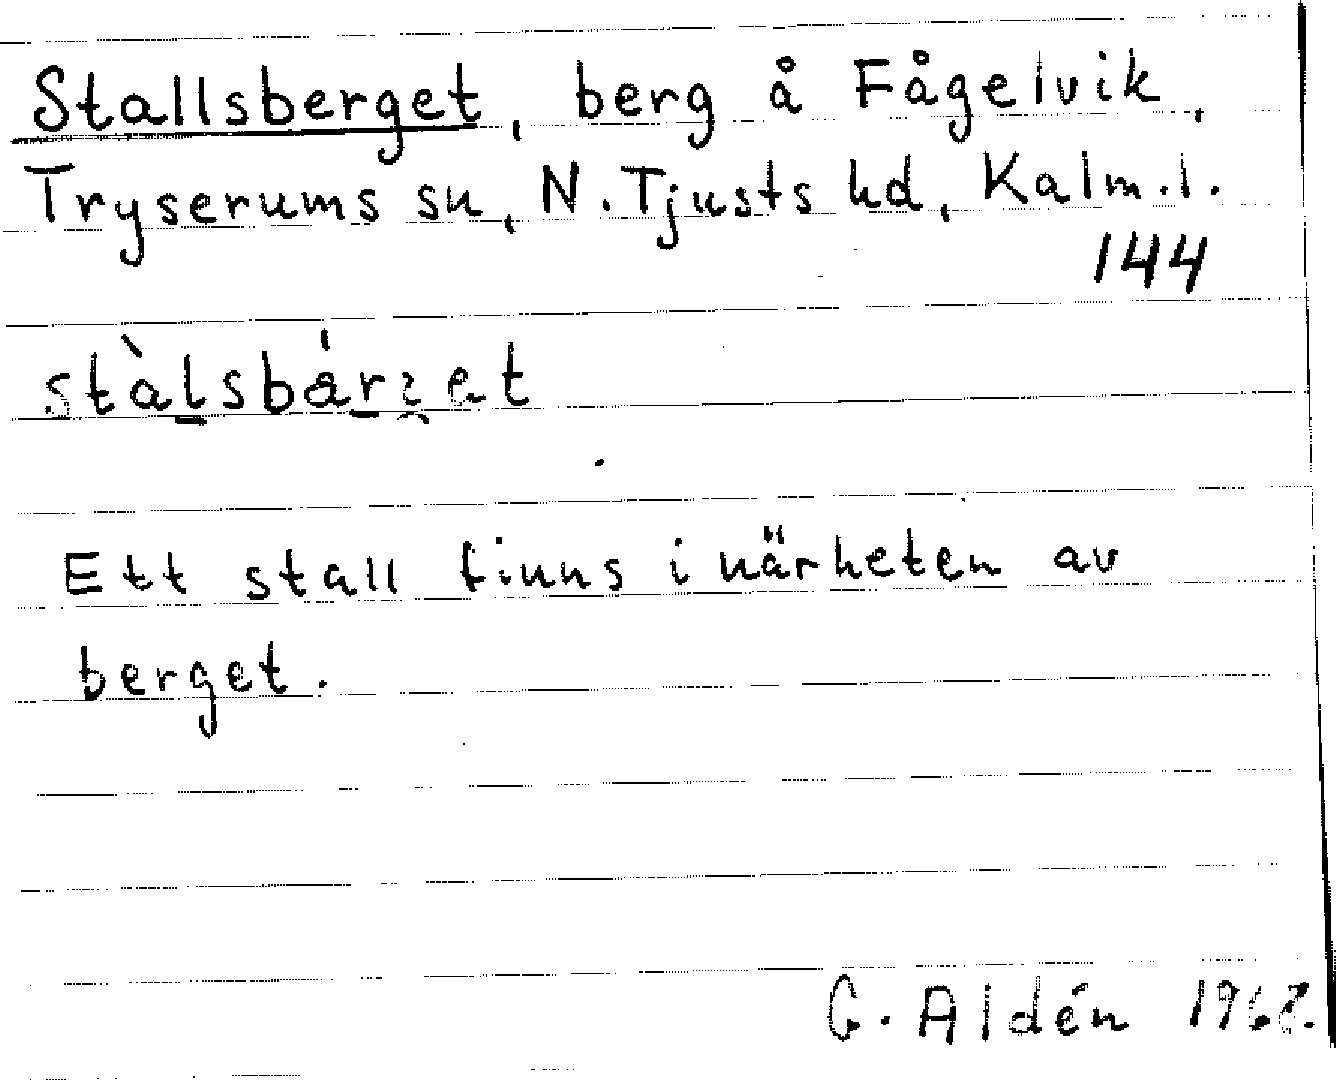 Stallsberget, berg å Fågelvik,
Tryserums sn, N. Tjusts hd, Kalm. l.
144
Ett stall finns i närheten av
berget.
G. Aldén